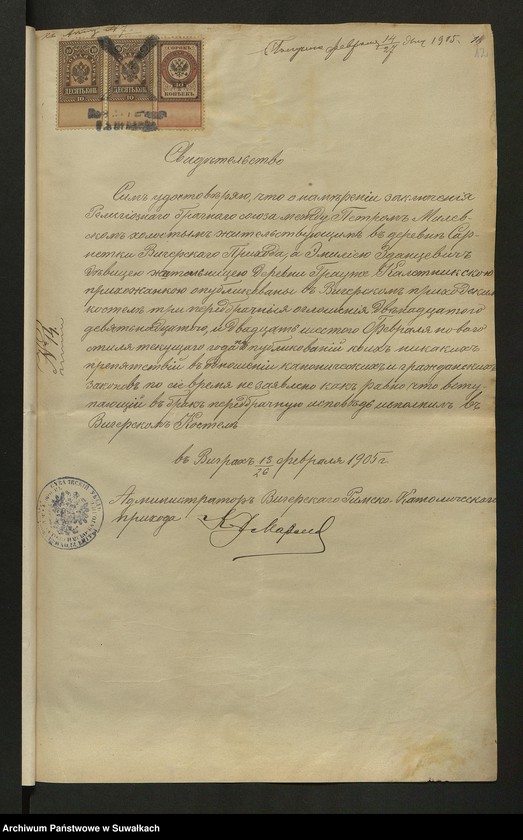 Получено февраля 14/27 дня 1905 г.
ДЕСЯТЬ КОП.
10
ДЕСЯТЬ КОП.
10
ГЕРБОВ.
10
КОПѢЕКЪ
Свидѣтельство
Симъ удостовѣряю, что о намѣреніи заключенія
религіознаго брачнаго союза между Петромъ Милев-
скомъ холостымъ жительствующимъ въ деревнѣ Сар-
нетки Вигерскаго Прихода, а Эмиліею Зданцевичъ
дѣвицею жительницею деревни Калетникскою
прихожанкою опубликованы въ Вигерскомъ приходскомъ
костелѣ три передбрачныя оглашенія Двѣнадцатого
девятнадцатого, и Двадцать шестого Февраля новаго
стиля текущаго года публикованій коихъ никакихъ
препятствій въ отношеніи каноническихъ и гражданскихъ
законовъ по сіе время не заявлено какъ равно что всту-
пающій въ бракъ передбрачную исповѣдь исполнилъ въ
Вигерскомъ Костелѣ
въ Виграхъ 13/26 февраля 1905 г.
Администраторъ Вигерскаго Римско-Католическаго
прихода
№ 14
Archiwum Państwowe w Suwałkach